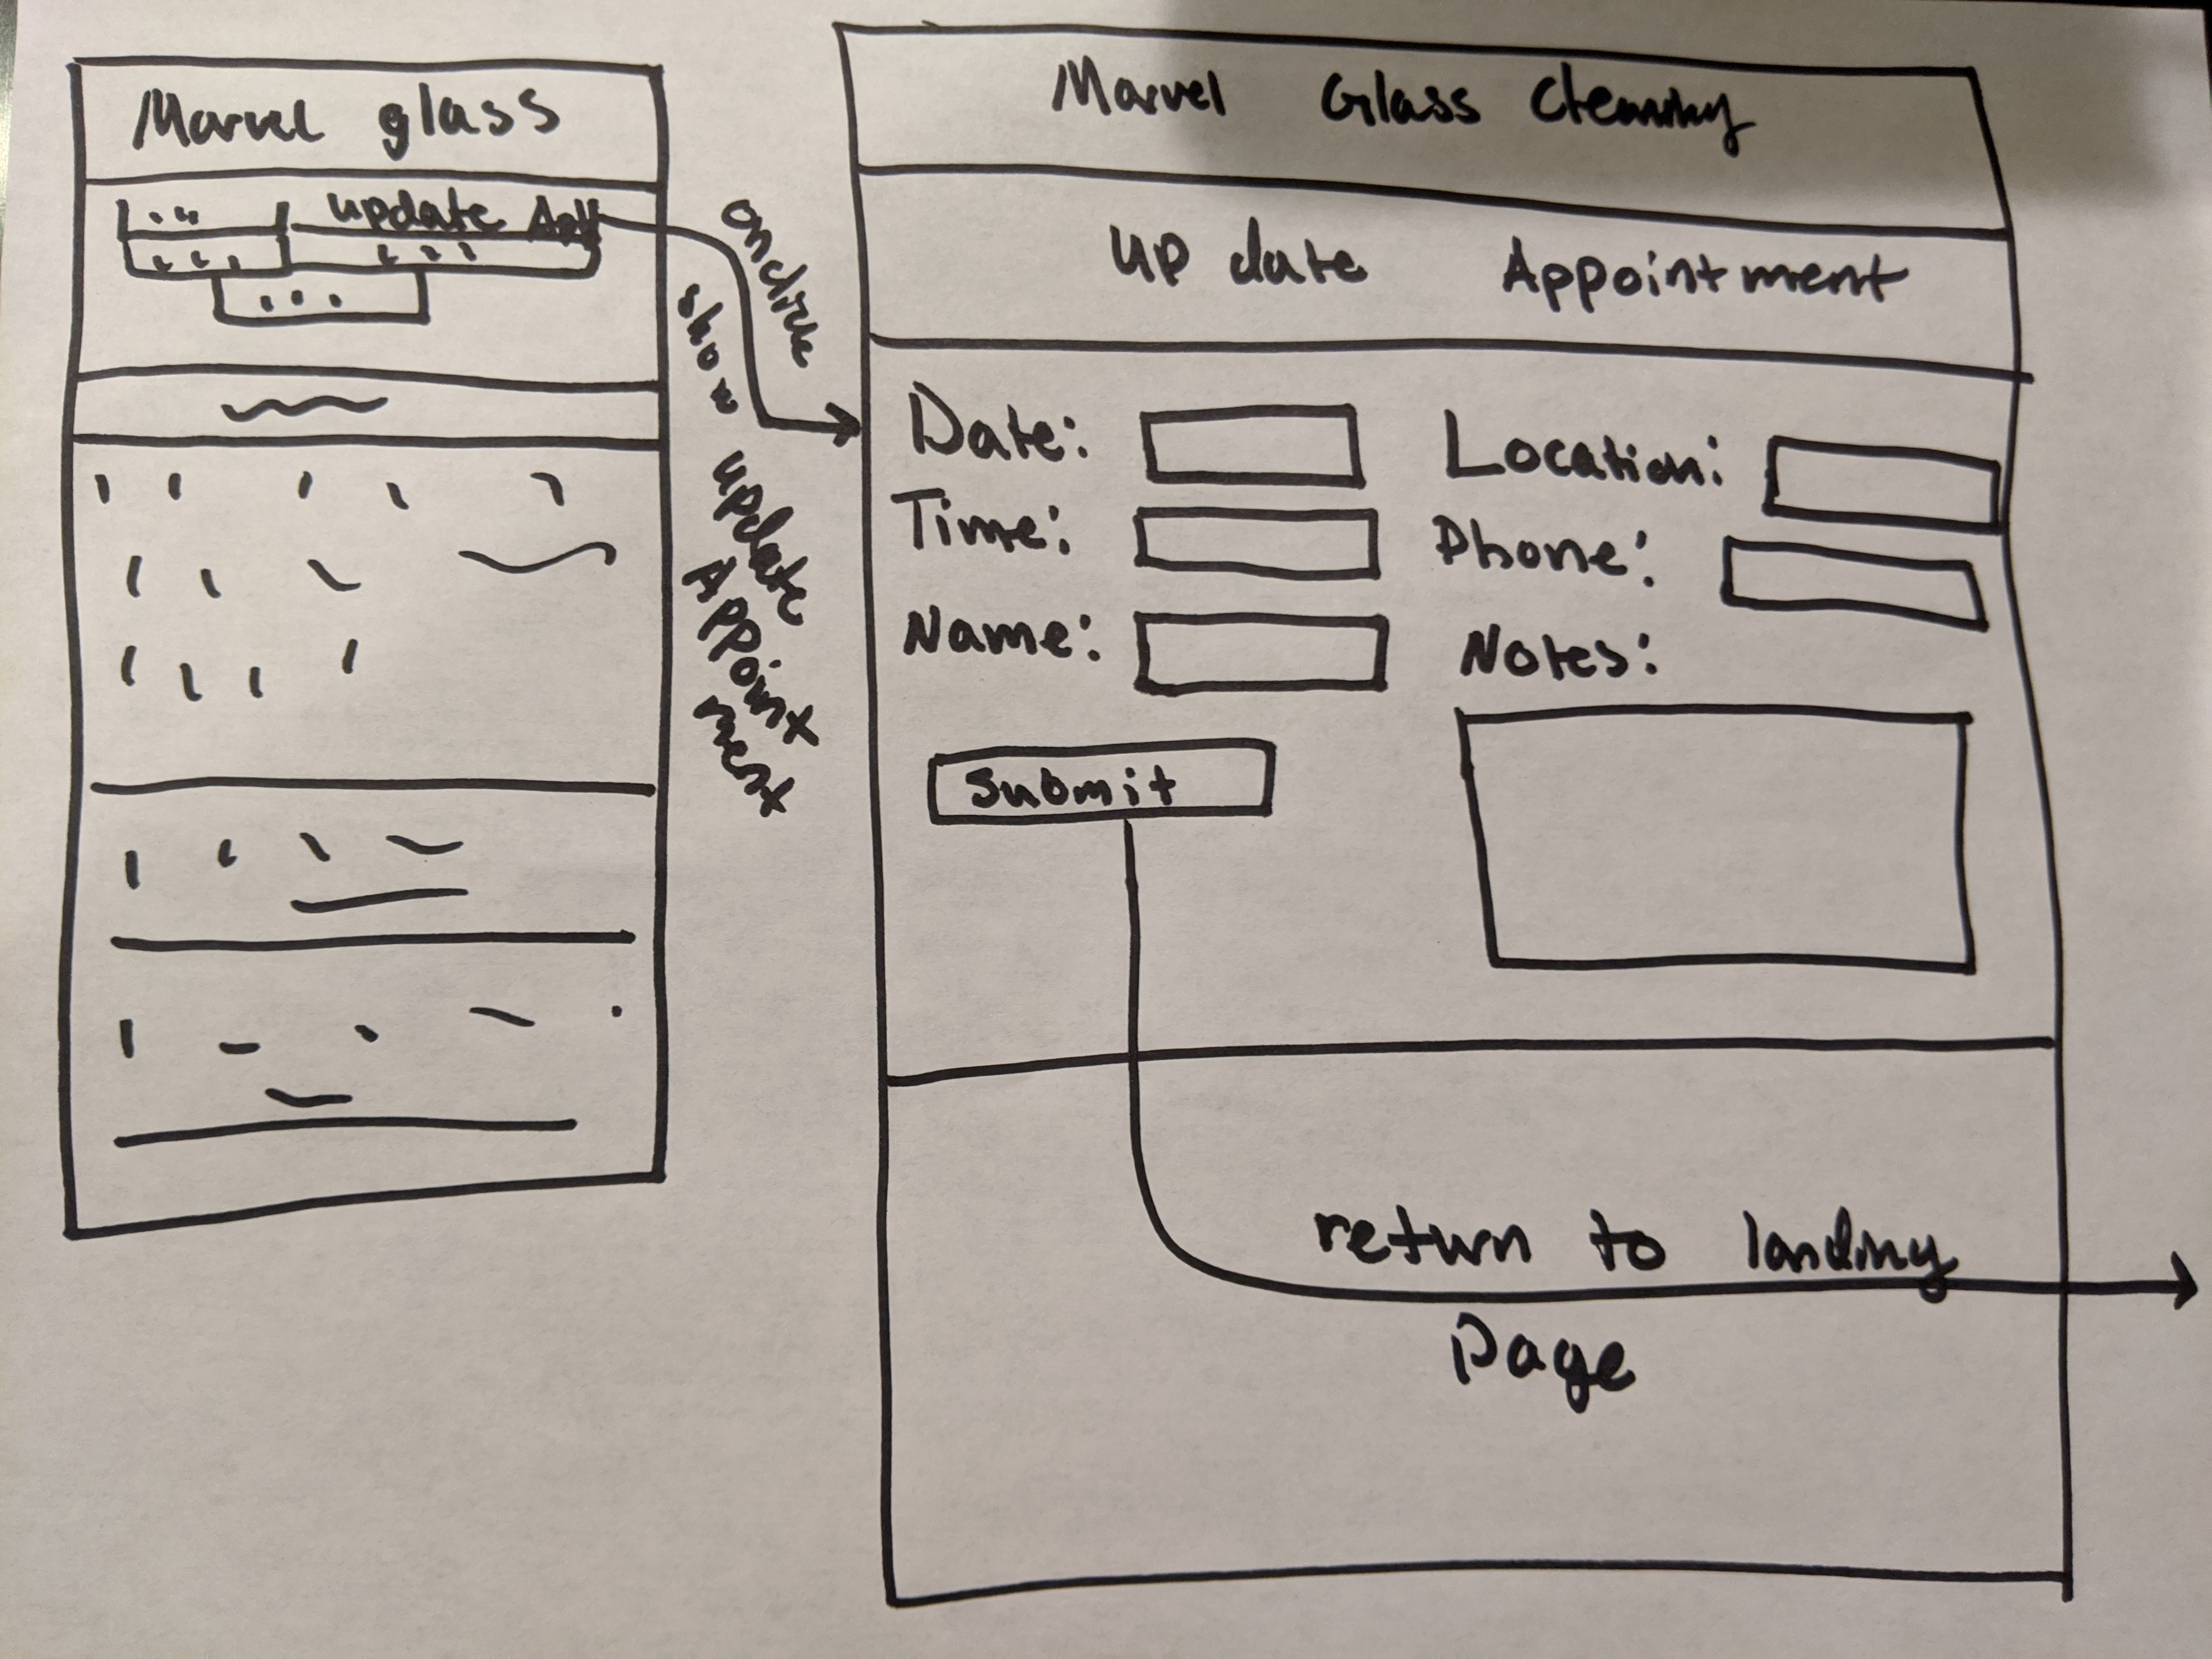 Marvel glass
update
onclick
show update
Appoint
ment
Marvel Glass Cleaning
up date Appointment
Date:
Location:
Time:
Phone:
Name:
Notes:
Submit
return to landing
Page